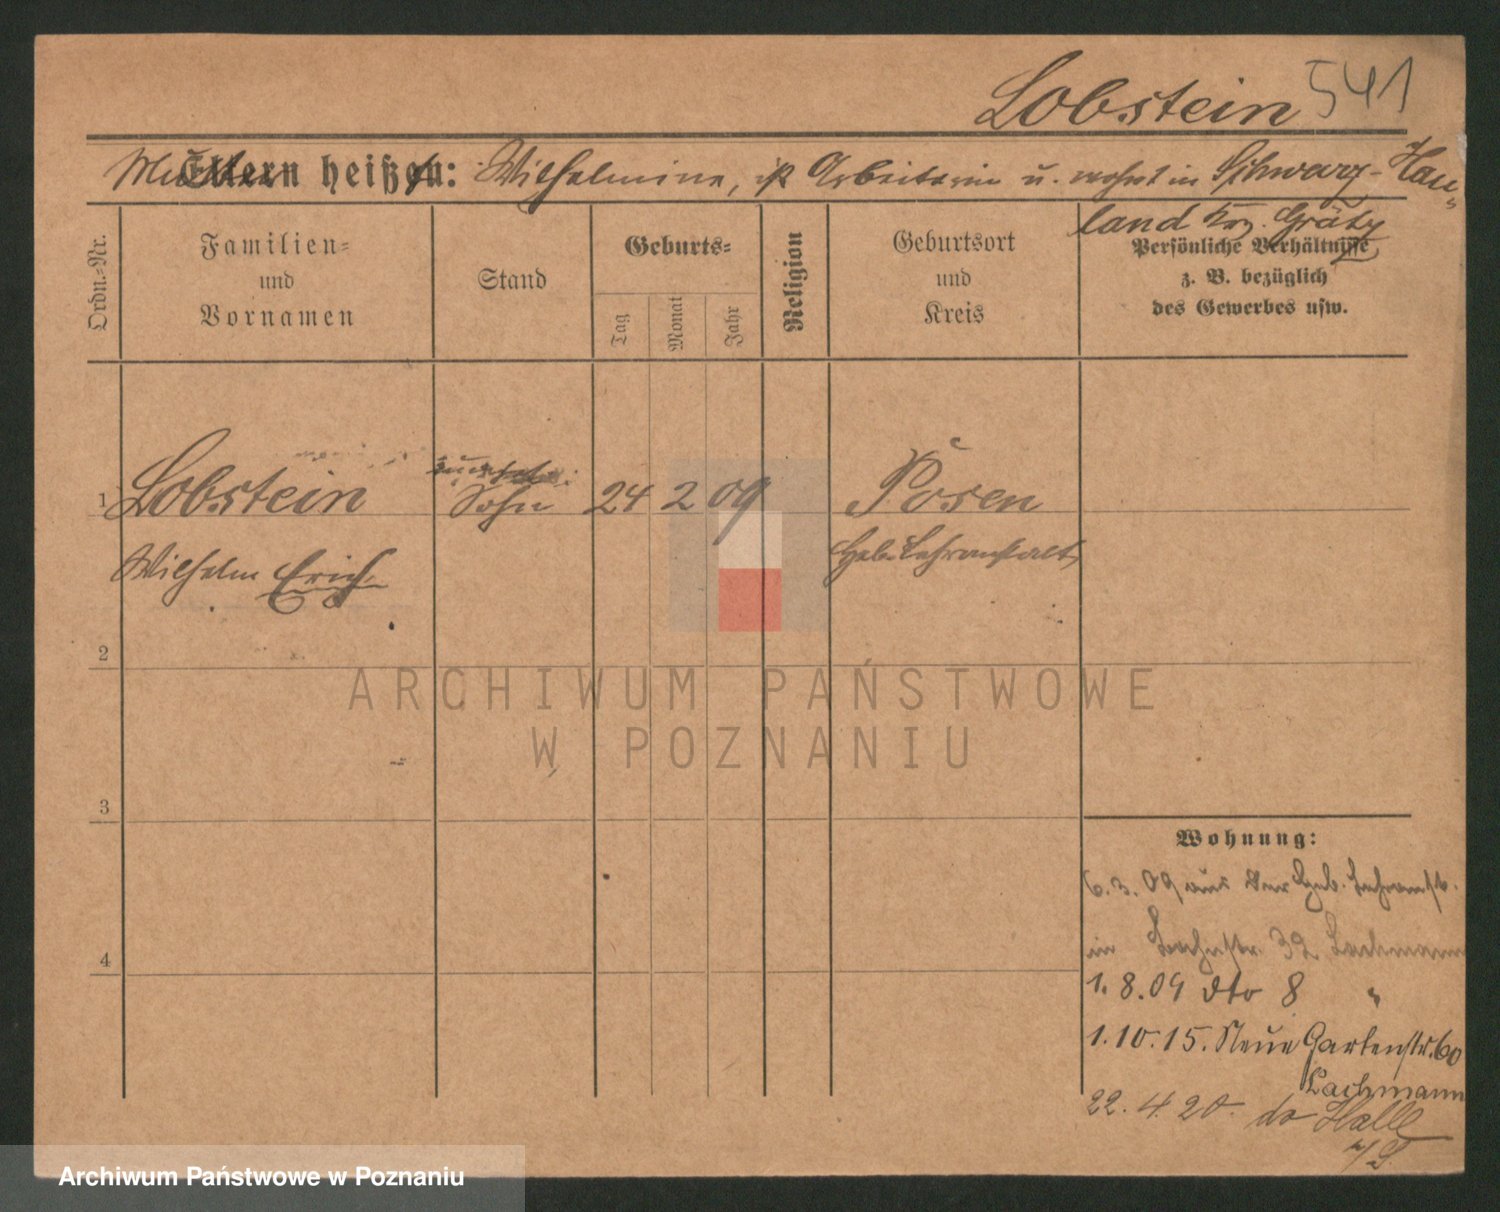 Lobstein 541
Mutter heißt: Wilhelmine, ist Arbeiterin u. wohnt in Schwarz-Hau-
land Krs. Grätz
Ordn.-Nr.
Familien-
und
Vornamen
Stand
Geburts-
Tag
Monat
Jahr
Religion
Geburtsort
und
Kreis
Persönliche Verhältnisse
z. B. bezüglich
des Gewerbes usw.
1 Lobstein Sohn 24 2 09 Posen
Wilhelm Erich Heb. Lehranstalt
2
3
4
Wohnung:
6.3.09 aus der Heb. Lehranst.
in 32 Lachmann
1.8.09 dto 8 "
1.10.15. Neue Gartenstr. 60
Lachmann
22.4.20. Halle
ARCHIWUM PAŃSTWOWE
W POZNANIU
Archiwum Państwowe w Poznaniu